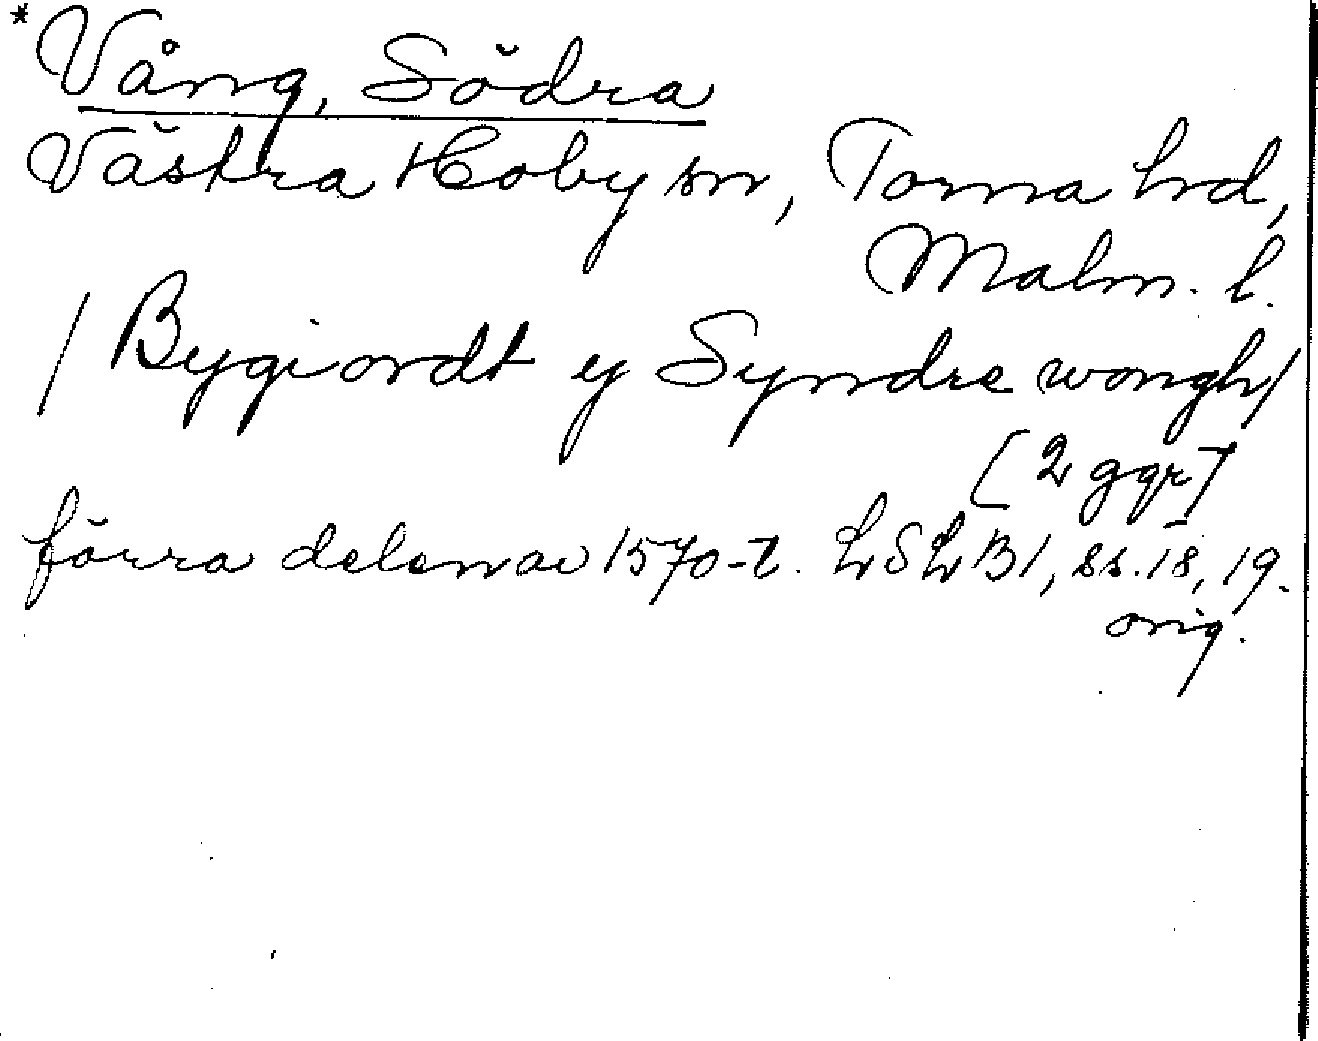 *Vång, Södra
Västra Hoby sn, Torna hd,
Malm. l.
/ Bygiordt y Syndre wongh/
[2 ggr]
förra delen av 1570-t. LSLB1, ss. 18, 19.
orig.